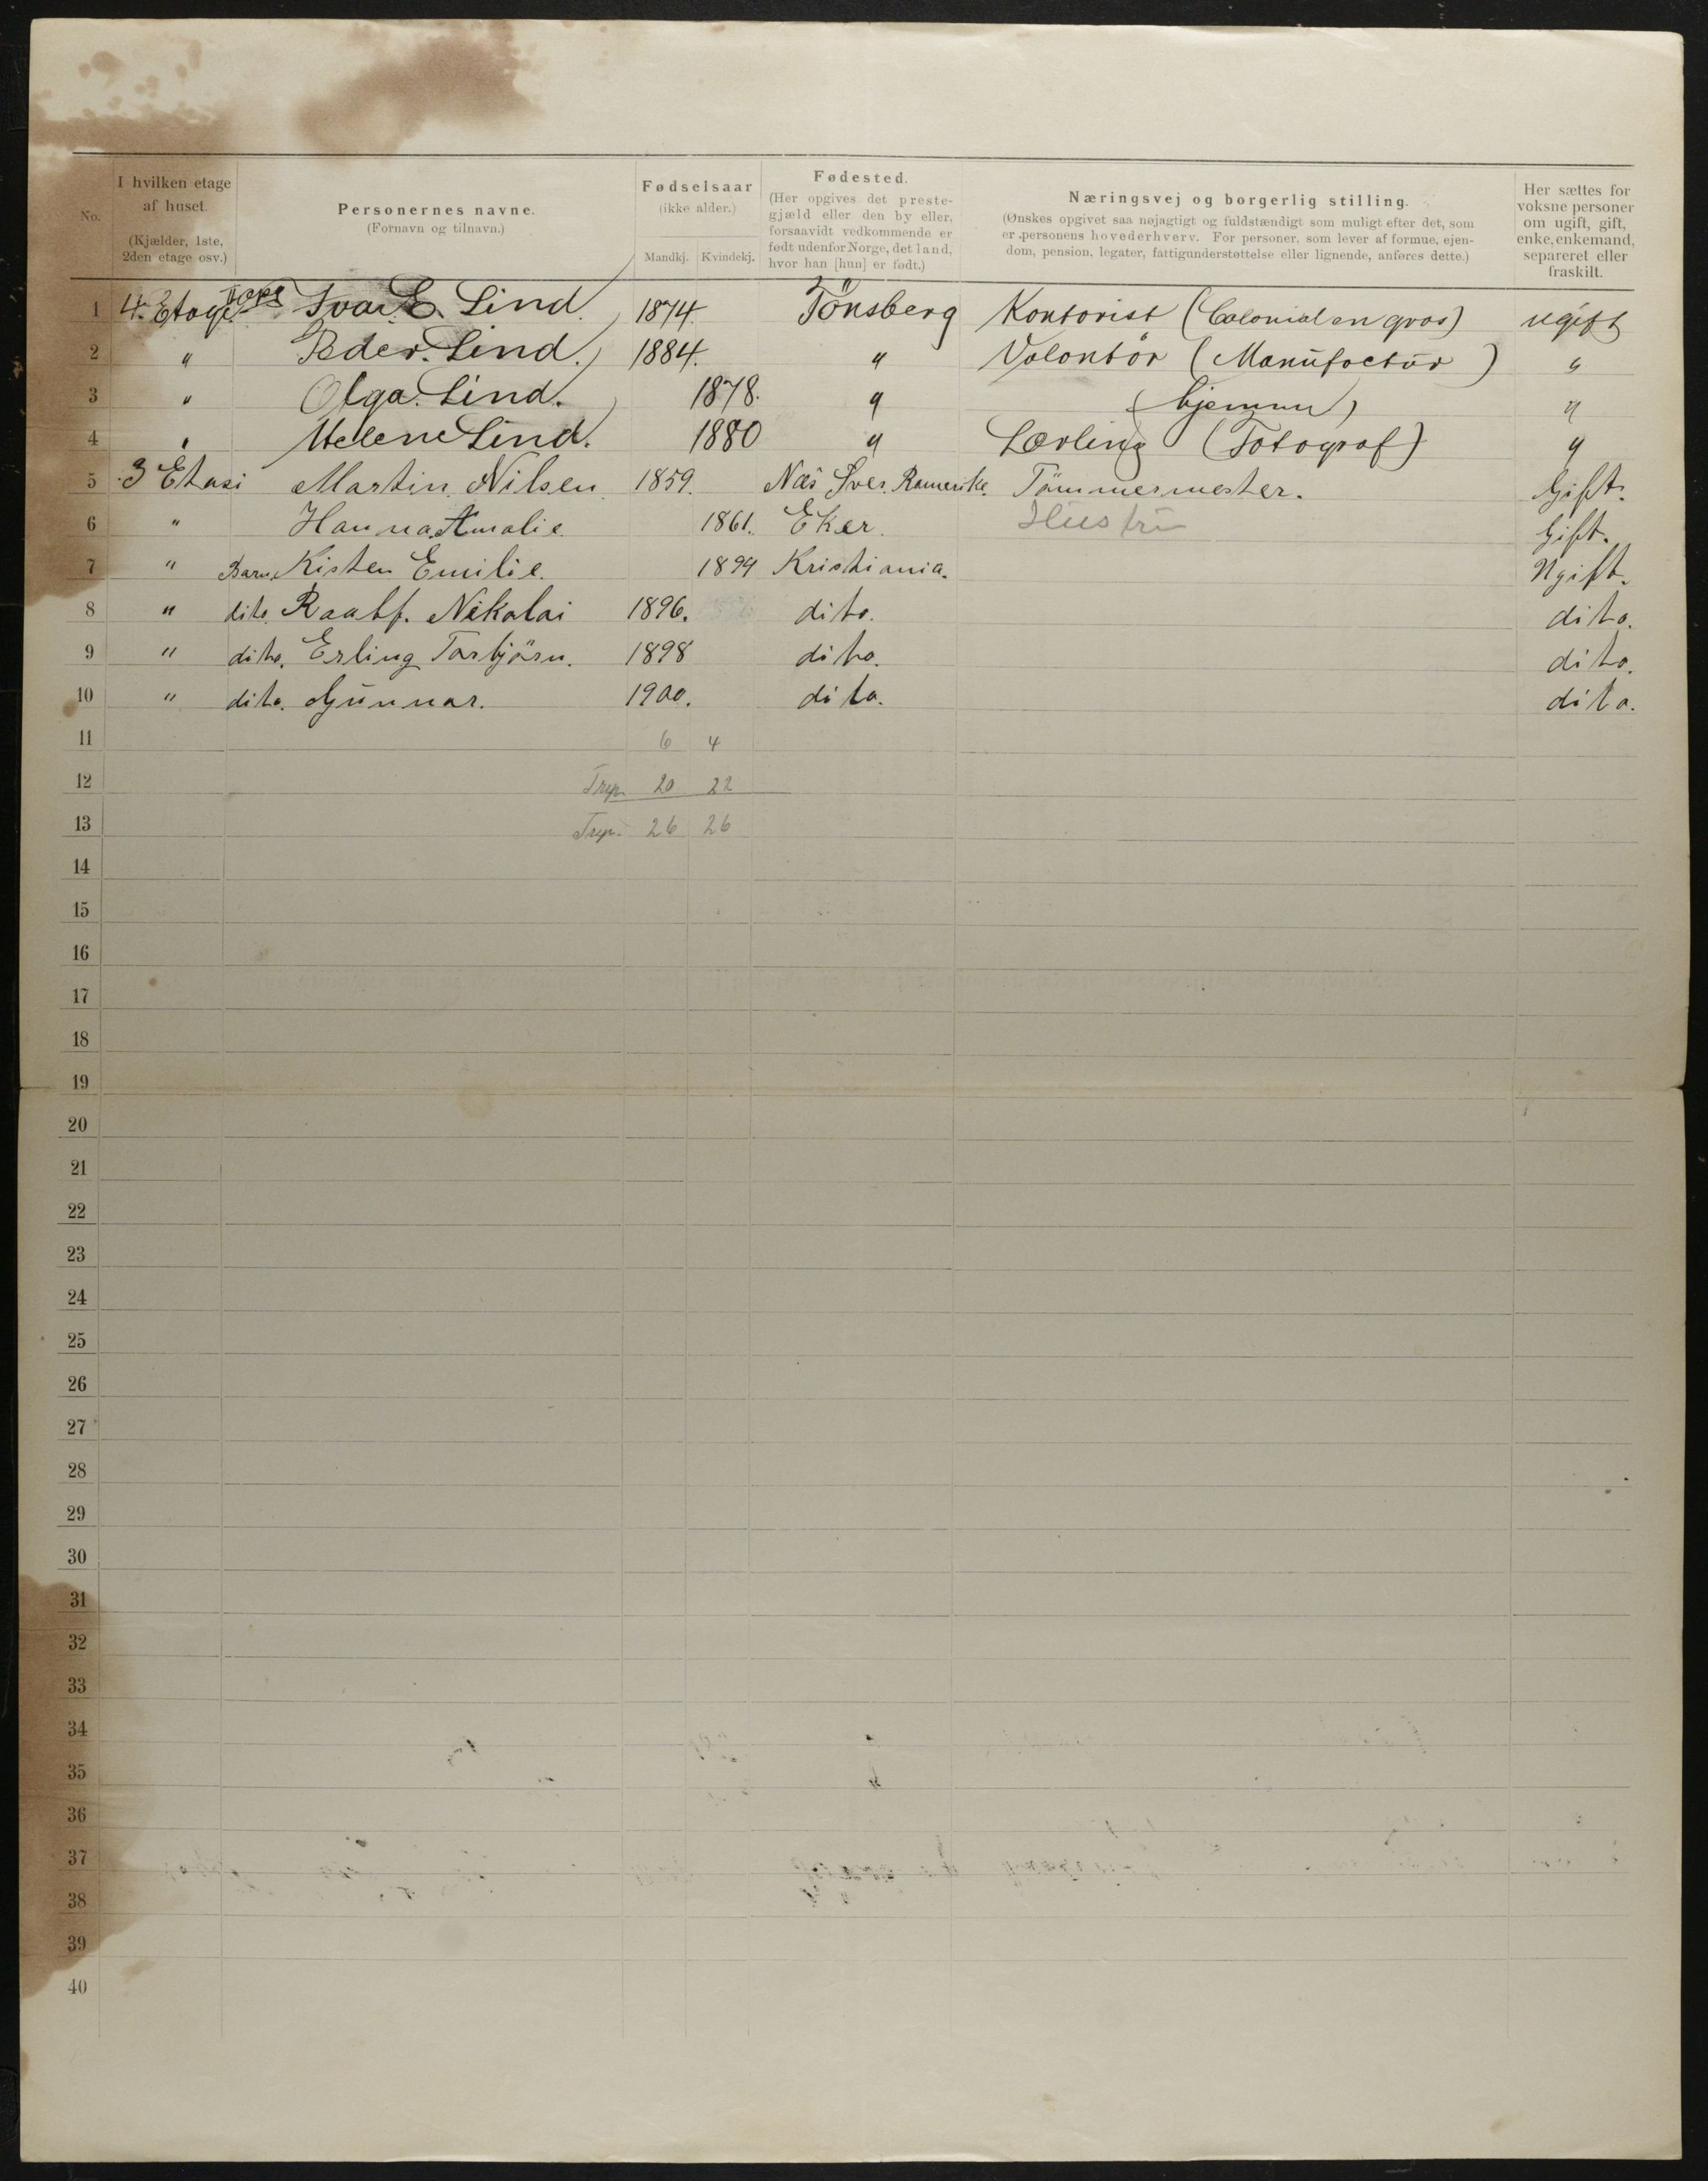 No.
I hvilken etage af huset. (Kjælder, 1ste, 2den etage osv.)
Personernes navne. (Fornavn og tilnavn.)
Fødselsaar (ikke alder.) Mandkj. Kvindekj.
Fødested. (Her opgives det prestegjæld eller den by eller, forsaavidt vedkommende er født udenfor Norge, det land, hvor han [hun] er født.)
Næringsvej og borgerlig stilling. (Ønskes opgivet saa nøjagtigt og fuldstændigt som muligt efter det, som er personens hovederhverv. For personer, som lever af formue, ejendom, pension, legater, fattigunderstøttelse eller lignende, anføres dette.)
Her sættes for voksne personer om ugift, gift, enke, enkemand, separeret eller fraskilt.
1 4. Etage Ivar E. Lind. 1874. Tönsberg Kontorist (Colonial en gros) ugift
2 " Peder. Lind. 1884. " Volontör (Manufactur) "
3 " Olga. Lind. 1878. " (hjemme) "
4 " Helene Lind. 1880 " Lærling (Fotograf) "
5 3 Etasi Martin Nilsen 1859. Næs Øver. Romerike. Tömmermester. Gift.
6 " Hanna Amalie. 1861. Eker. Hustru Gift.
7 " Barn, Kisten Emilie. 1894 Kristiania. Ugift.
8 " dito. Nikolai 1896. dito. dito.
9 " dito. Erling Torbjörn. 1898 dito. dito.
10 " dito. Gunnar. 1900. dito. dito.
11 6 4
12 20 22
13 26 26
14
15
16
17
18
19
20
21
22
23
24
25
26
27
28
29
30
31
32
33
34
35
36
37
38
39
40